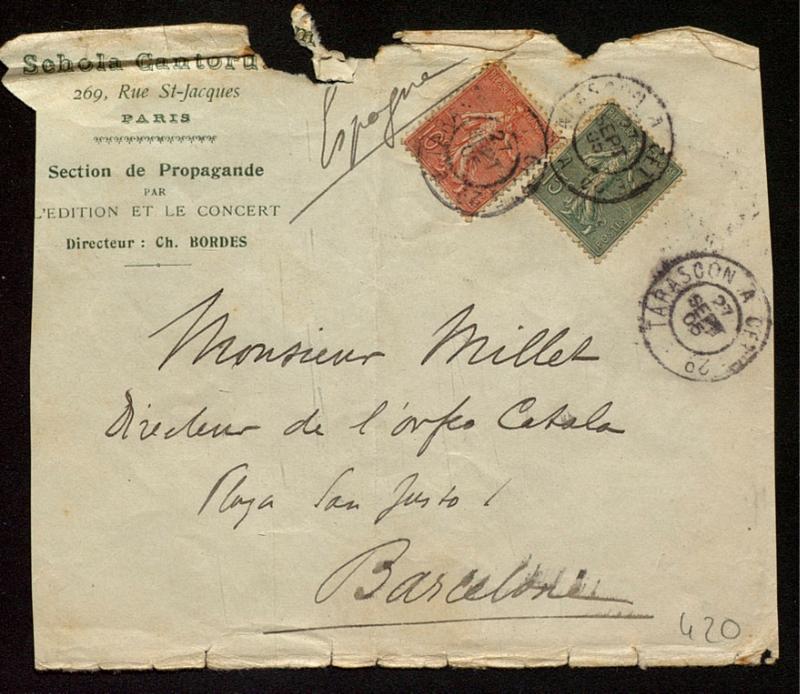 Schola Cantoru
269, Rue St-Jacques
PARIS
Section de Propagande
PAR
L'EDITION ET LE CONCERT
Directeur : Ch. BORDES
Espagne
TARASCON A CETTE
27
SEPT
05
Monsieur Millet
Directeur de l'orfeo Catala
Plaza San Justo 1
Barcelone
420